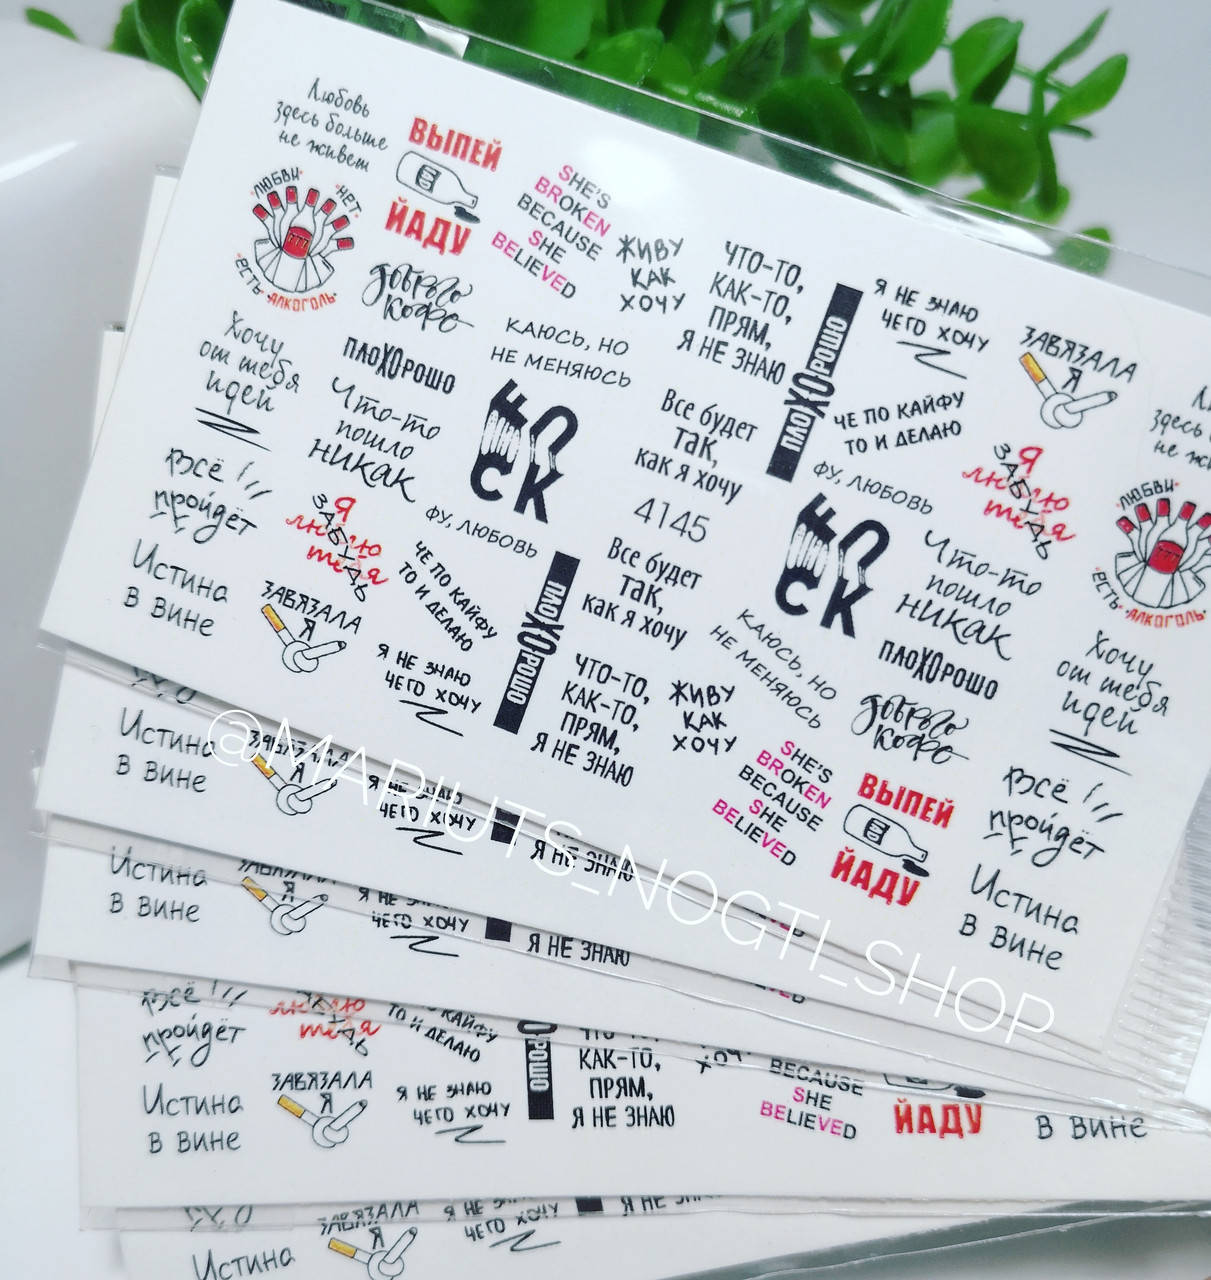 Любовь
здесь больше
не живет
ВЫПЕЙ
ЙАДУ
ЛЮБВИ НЕТ
ЕСТЬ АЛКОГОЛЬ
SHE'S
BROKEN
BECAUSE
SHE
BELIEVED
ЖИВУ
КАК
ХОЧУ
ЧТО-ТО,
КАК-ТО,
ПРЯМ,
Я НЕ ЗНАЮ
Я НЕ ЗНАЮ
ЧЕГО ХОЧУ
ЗАВЯЗАЛА
Я
доброго
кофе
Хочу
от тебя
идей
ПЛОХОРОШО
КАЮСЬ, НО
НЕ МЕНЯЮСЬ
Что-то
пошло
никак
Все будет
так,
как я хочу
ПЛОХОРОШО
ЧЕ ПО КАЙФУ
ТО И ДЕЛАЮ
ФУ, ЛЮБОВЬ
Я
люблю
тебя
ЗАБУДЬ
Всё
пройдёт
FUCK
4145
Истина
в вине
Я
люблю
тебя
ЗАБУДЬ
ФУ, ЛЮБОВЬ
ЧЕ ПО КАЙФУ
ТО И ДЕЛАЮ
ЗАВЯЗАЛА
Я
Я НЕ ЗНАЮ
ЧЕГО ХОЧУ
ПЛОХОРОШО
Все будет
так,
как я хочу
FUCK
Что-то
пошло
никак
ЛЮБВИ
ЕСТЬ АЛКОГОЛЬ
КАЮСЬ, НО
НЕ МЕНЯЮСЬ
ПЛОХОРОШО
Хочу
от тебя
идей
ЧТО-ТО,
КАК-ТО,
ПРЯМ,
Я НЕ ЗНАЮ
ЖИВУ
КАК
ХОЧУ
доброго
кофе
SHE'S
BROKEN
BECAUSE
SHE
BELIEVED
ВЫПЕЙ
ЙАДУ
Всё
пройдёт
Истина
в вине
@MARIUTS_NOGTI_SHOP
Истина
в вине
ЗАВЯЗАЛА
Я
Я НЕ ЗНАЮ
ЧЕГО ХОЧУ
Я НЕ ЗНАЮ
Истина
в вине
ЗАВЯЗАЛА
Я
Я НЕ ЗНАЮ
ЧЕГО ХОЧУ
Я НЕ ЗНАЮ
Всё
пройдёт
люблю
тебя
КАЙФУ
ТО И ДЕЛАЮ
РОШО
ЧТО-ТО,
КАК-ТО,
ПРЯМ,
Я НЕ ЗНАЮ
BECAUSE
SHE
BELIEVED
ЙАДУ
Истина
в вине
ЗАВЯЗАЛА
Я
Я НЕ ЗНАЮ
ЧЕГО ХОЧУ
в вине
Истина
ЗАВЯЗАЛА
Я
Я НЕ ЗНАЮ
ЧЕГО ХОЧУ
Я НЕ ЗНАЮ